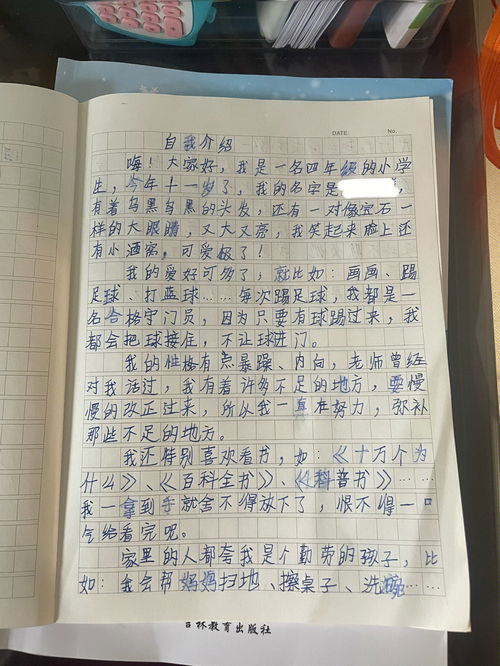 DATE: No.
自我介绍
嗨！大家好，我是一名四年级的小学
生，今年十一岁了，我的名字是
有着乌黑乌黑的头发，还有一对像宝石一
样的大眼睛，又大又亮，我笑起来脸上还
有小酒窝，可爱极了！
我的爱好可多了，就比如：画画、踢
足球、打蓝球……每次踢足球，我都是一
名合格守门员，因为只要有球踢过来，我
都会把球接住，不让球进门。
我的性格有点暴躁、内向，老师曾经
对我话过，我有着许多不足的地方，要慢
慢的改正过来，所以我一直在努力，弥补
那些不足的地方。
我还特别喜欢看书，如：《十万个为
什么》、《百科全书》、《科普书》……
我一拿到手就舍不得放下了，恨不得一口
气给看完呢。
家里的人都夸我是个勤劳的孩子，比
如：我会帮妈妈扫地、擦桌子、洗碗……
吉林教育出版社